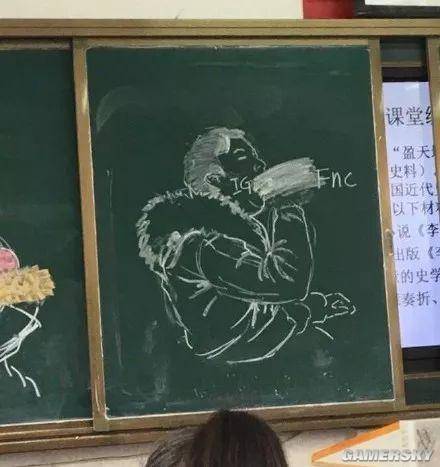 IG
FNC
课堂
“盈天
史料）
国近代
以下材
说《李
出版《李
的史学
奏折、
GAMERSKY